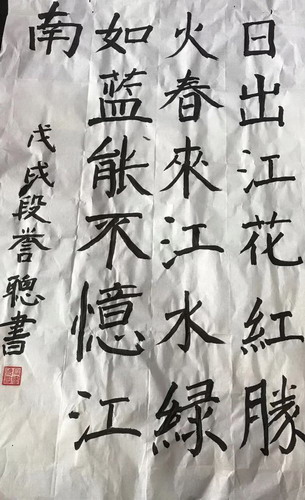 日出江花紅勝
火春來江水緑
如蓝能不憶江
南
戊戌段誉聰書